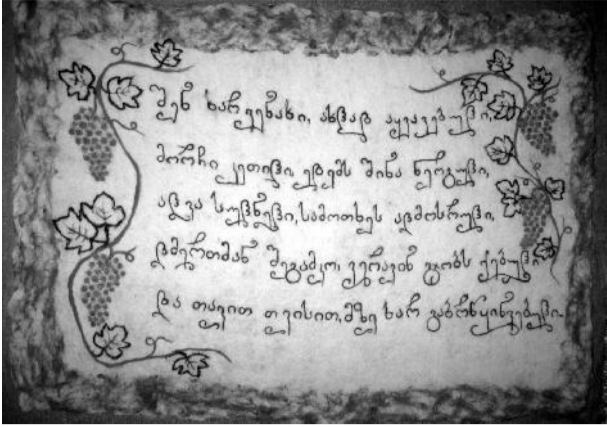 შენ ხარ ვენახი, ახლად აყვავებული,
მორჩი კეთილი, ედემს შინა ნერგული,
ალვა სულნელი, სამოთხეს აღმოსრული,
ღმერთმან შეგამკო, ვერავინ გჯობს ქებული
და თავით თვისით, მზე ხარ გაბრწყინვებული.